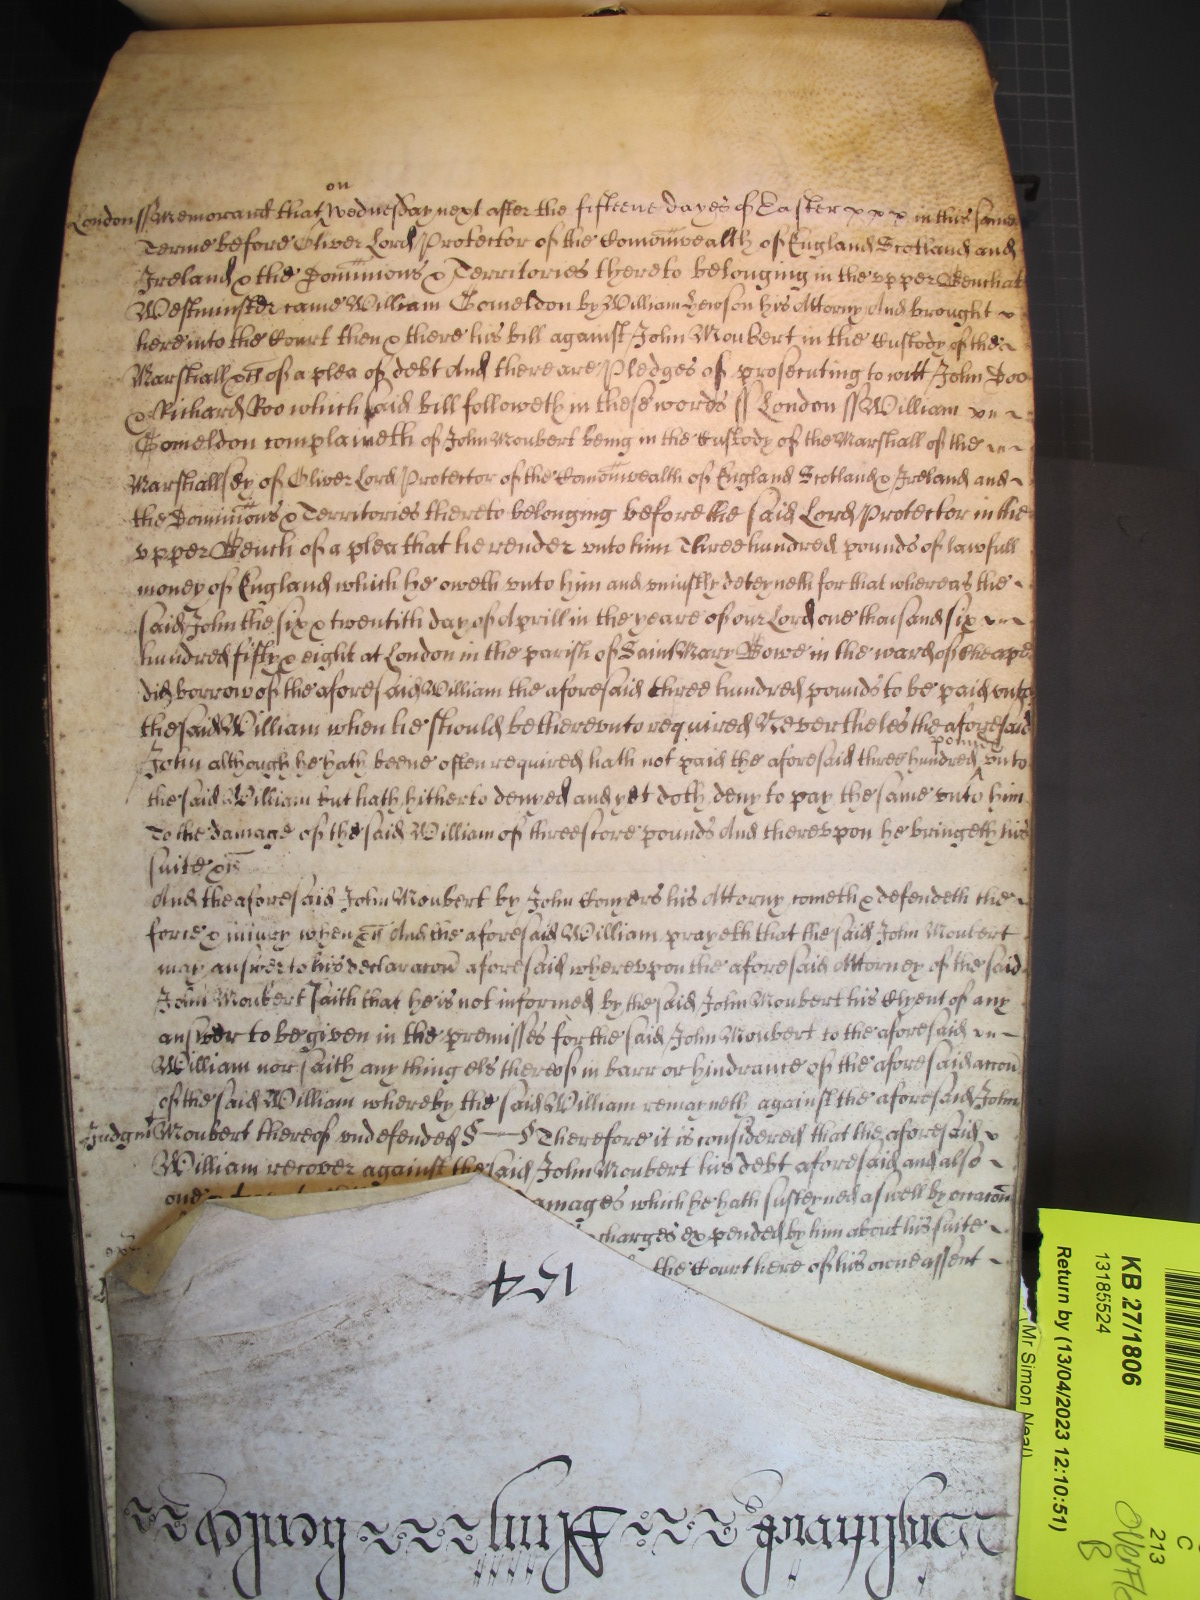 on
London ss Memorand that Wednesday next after the fifteene dayes of Easter x x x in this same
Terme before Oliver Lord Protector of the Comonwealth of England Scotland and
Ireland & the Dominions & Territories thereto belonging in the upper Bench at
Westminster came William Comeldon by William Lewson his Attorny And brought
here into the Court then & there his bill against John Moubert in the Custody of the
Marshall &c of a plea of debt And there are Pledges of prosecuting to witt John Doo
& Richard Roo which said bill followeth in these words ss London ss William
Comeldon complaineth of John Moubert being in the Custody of the Marshall of the
Marshallsey of Oliver Lord Protector of the Comonwealth of England Scotland & Ireland and
the Dominions & Territories thereto belonging before the said Lord Protector in the
upper Bench of a plea that he render unto him Three hundred pounds of lawfull
money of England which he oweth unto him and uniustly deteyneth for that whereas the
said John the six & twentith day of Aprill in the yeare of our Lord one thousand six
hundred fifty & eight at London in the parish of Saint Mary Bowe in the ward of Cheape
did borrow of the aforesaid William the aforesaid three hundred pounds to be paid unto
the said William when he should be thereunto required Neverthelesse the aforesaid
pounds
John although he hath beene often required hath not paid the aforesaid three hundred unto
the said William but hath hitherto denyed and yet doth deny to pay the same unto him
To the damage of the said William of threescore pounds And thereupon he bringeth his
suite &c
And the aforesaid John Moubert by John Conyers his Attorny cometh & defendeth the
force & iniury when &c And the aforesaid William prayeth that the said John Moubert
may answer to his declaracon aforesaid whereupon the aforesaid Attorney of the said
John Moubert saith that he is not informed by the said John Moubert his Clyent of any
answer to be given in the premisses for the said John Moubert to the aforesaid
William nor saith any thing els thereof in barr or hindrance of the aforesaid accon
of the said William whereby the said William remayneth against the aforesaid John
Judgmt Moubert thereof undefended § — § Therefore it is considered that the aforesaid
William recover against the said John Moubert his debt aforesaid and also
one damages which he hath susteyned aswell by occacon
charges expended by him about his suite
the Court here of his owne assent
154
KB 27/1806
13185524
Return by (13/04/2023 12:10:51)
(Mr Simon Neal)
C
213